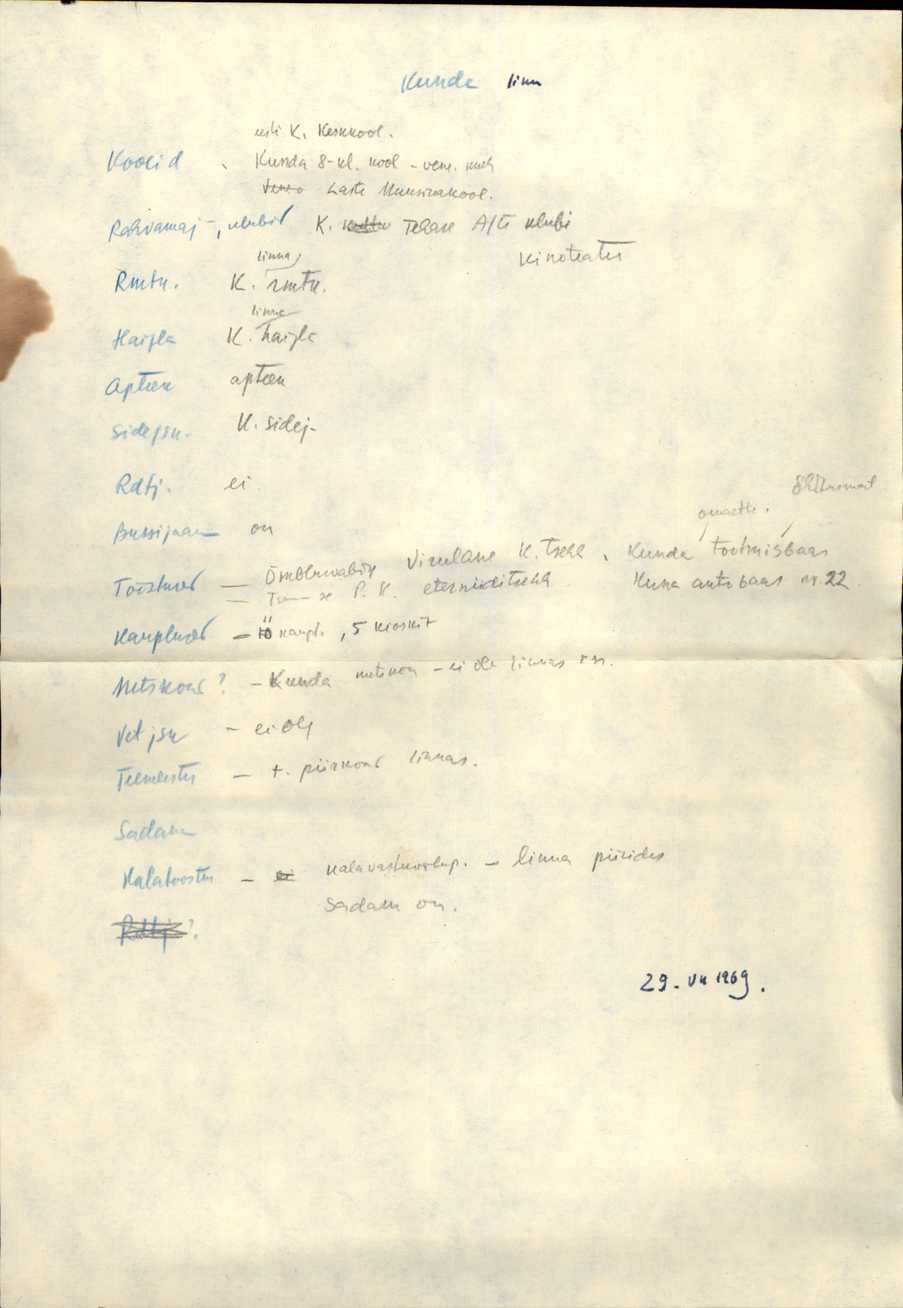 Kunda linn
eesti K. Keskkool.
Koolid Kunda 8-kl. kool - vene. keel
Laste Muusikakool.
Rahvamaj-, klubid K. Tehase A/Ü klubi
kinoteater
linna
Rmtk. K. rmtk.
linna
Haigla K. haigla
Apteek apteek
Sidejsk. K. sidej-
Rdtj. ei
Bussijaam on
Tööstused — Õmblusvabrik Virulane K. tsehh, Kunda tootmisbaas
P. K. eterniiditsehh Kunda autobaas nr. 22
Kauplused — 11 kaupl., 5 kioskit
Metskond? — Kunda metskon — ei ole linnas
Vet jsk — ei ole
Teemeister — t. piirkond linnas.
Sadam
Kalatööstus — kalavastuvõtup. — linna piirides
Sadam on.
29. VII 1969.